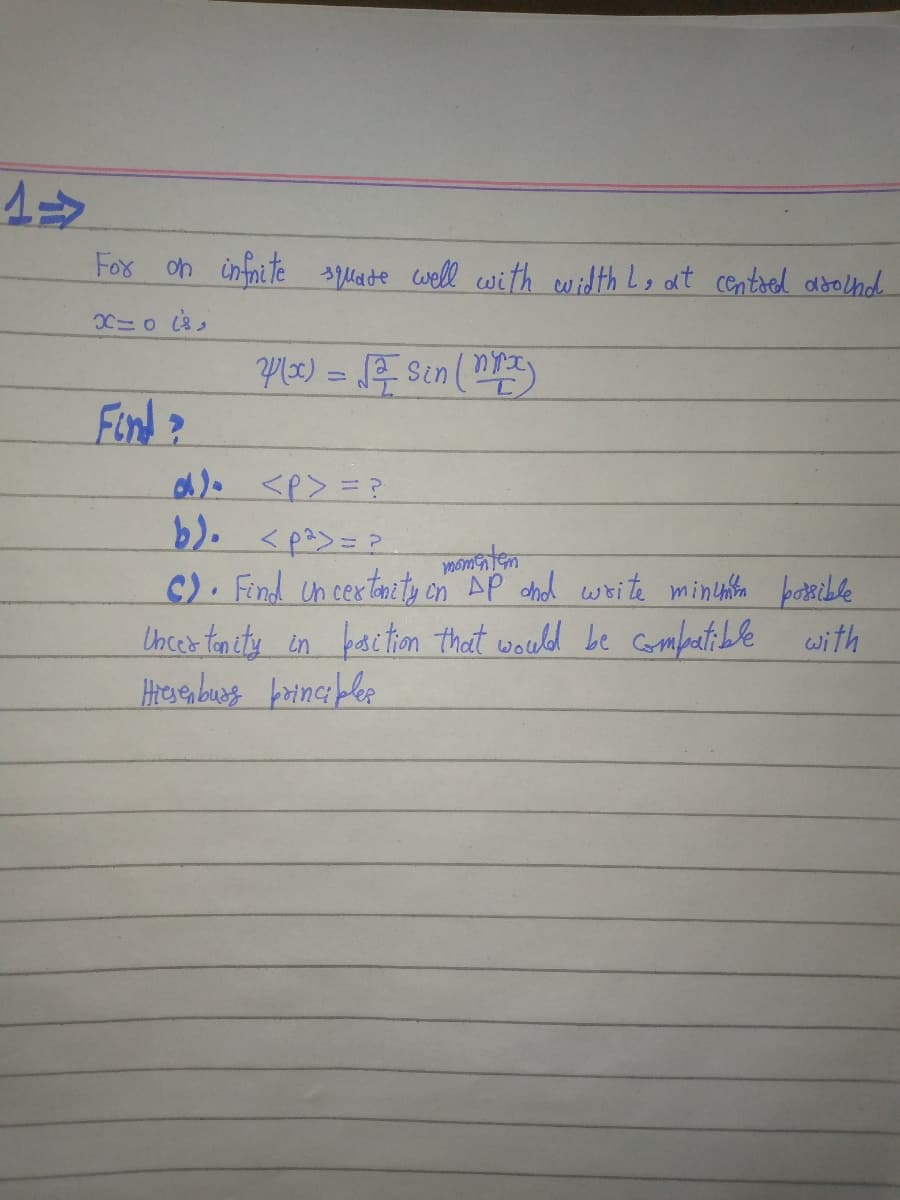 1⇒
For an infnite square well with width L, at centred around
x=0 is,
ψ(x) = √2/L Sin(nπx/L)
Find?
a). <p> = ?
b). <p²> = ?
momentem
c). Find uncertanity in ΔP and write minimum possible
Uncertancity in position that would be Compatible with
Hiesenburg principles